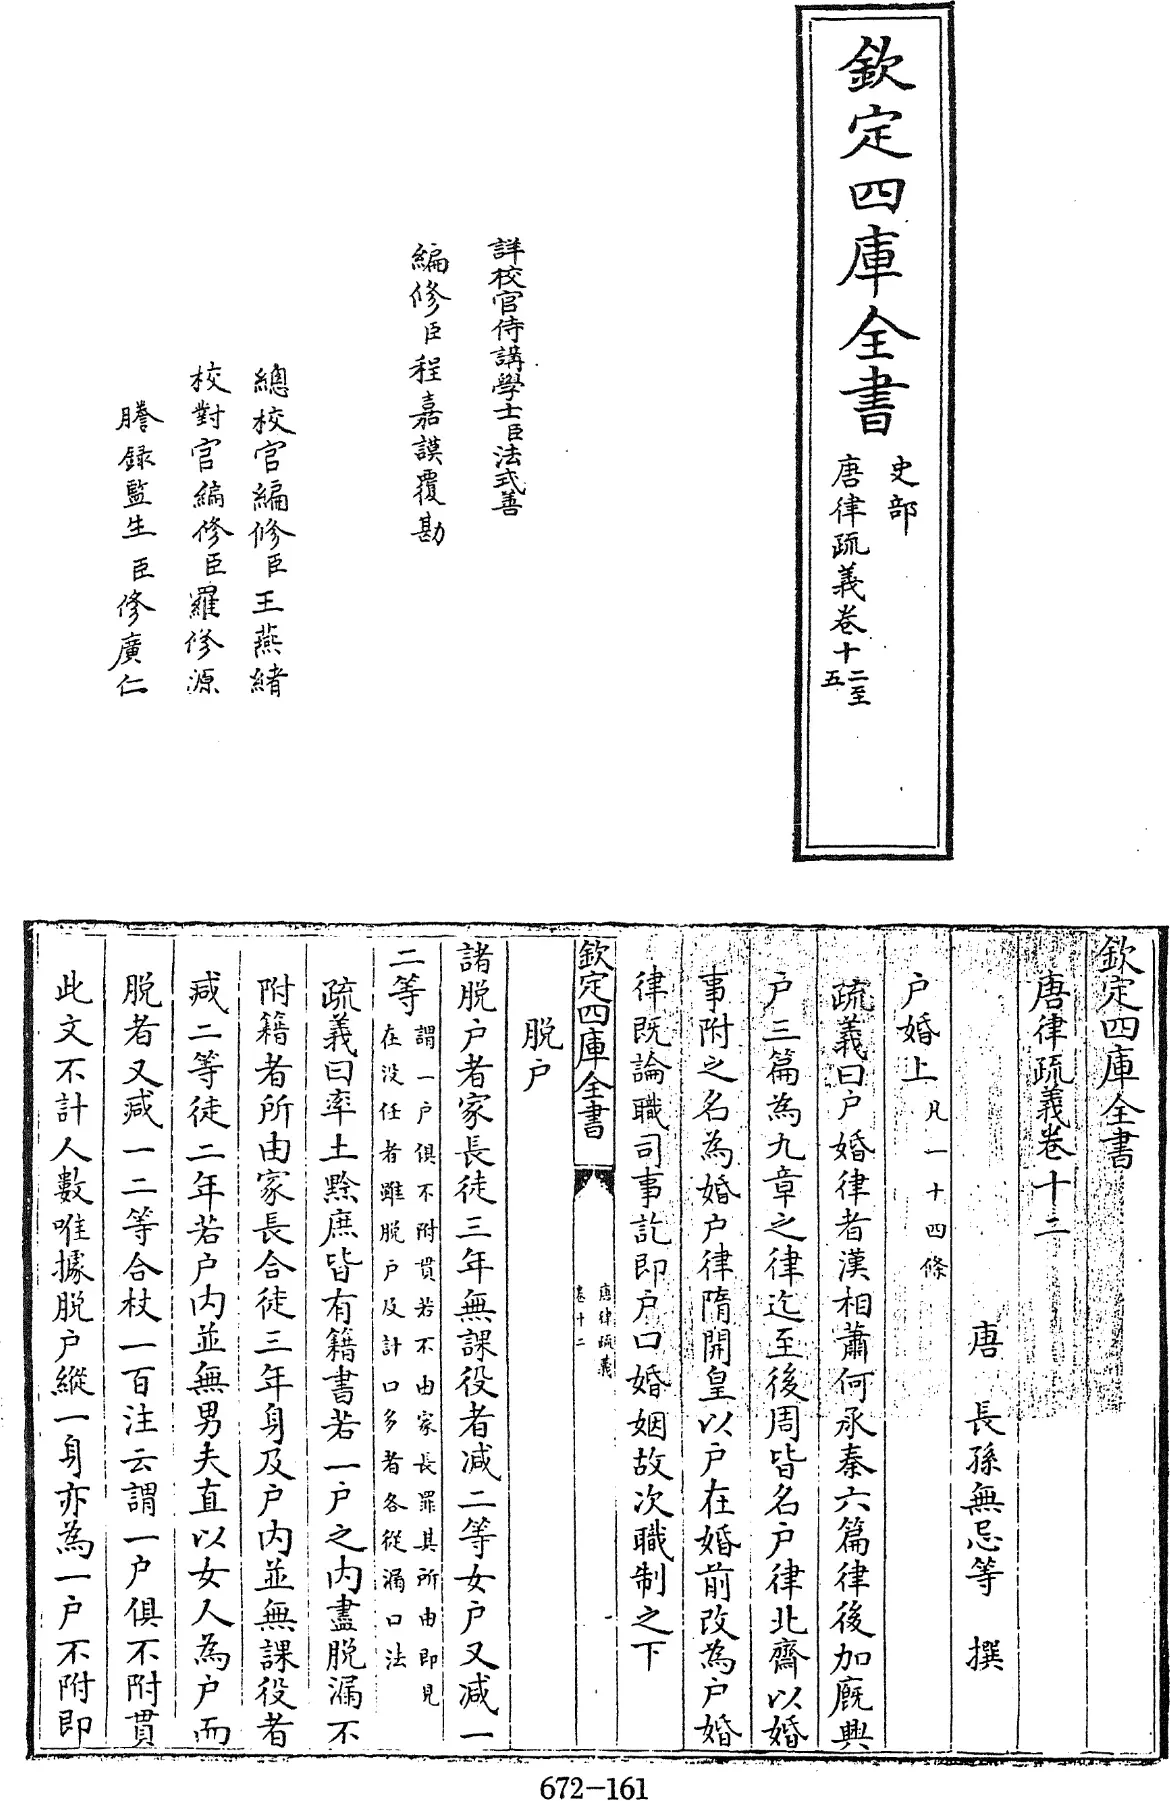 欽定四庫全書
史部
唐律疏義卷十二至五
詳校官侍講學士臣法式善
編修臣程嘉謨覆勘
總校官編修臣王燕緒
校對官編修臣羅修源
謄錄監生臣修廣仁
欽定四庫全書
唐律疏義卷十二
唐 長孫無忌等 撰
户婚上凡一十四條
疏義曰户婚律者漢相蕭何承秦六篇律後加廐興
户三篇為九章之律迄至後周皆名户律北齊以婚
事附之名為婚户律隋開皇以户在婚前改為户婚
律既論職司事訖即户口婚姻故次職制之下
欽定四庫全書
唐律疏義
卷十二
脱户
諸脱户者家長徒三年無課役者减二等女户又减一
二等謂一户俱不附貫若不由家長罪其所由即見
在没任者雖脱户及計口多者各從漏口法
疏義曰率土黔庶皆有籍書若一户之内盡脱漏不
附籍者所由家長合徒三年身及户内並無課役者
减二等徒二年若户内並無男夫直以女人為户而
脱者又减一二等合杖一百注云謂一户俱不附貫
此文不計人數唯據脱户縱一身亦為一户不附即
672-161